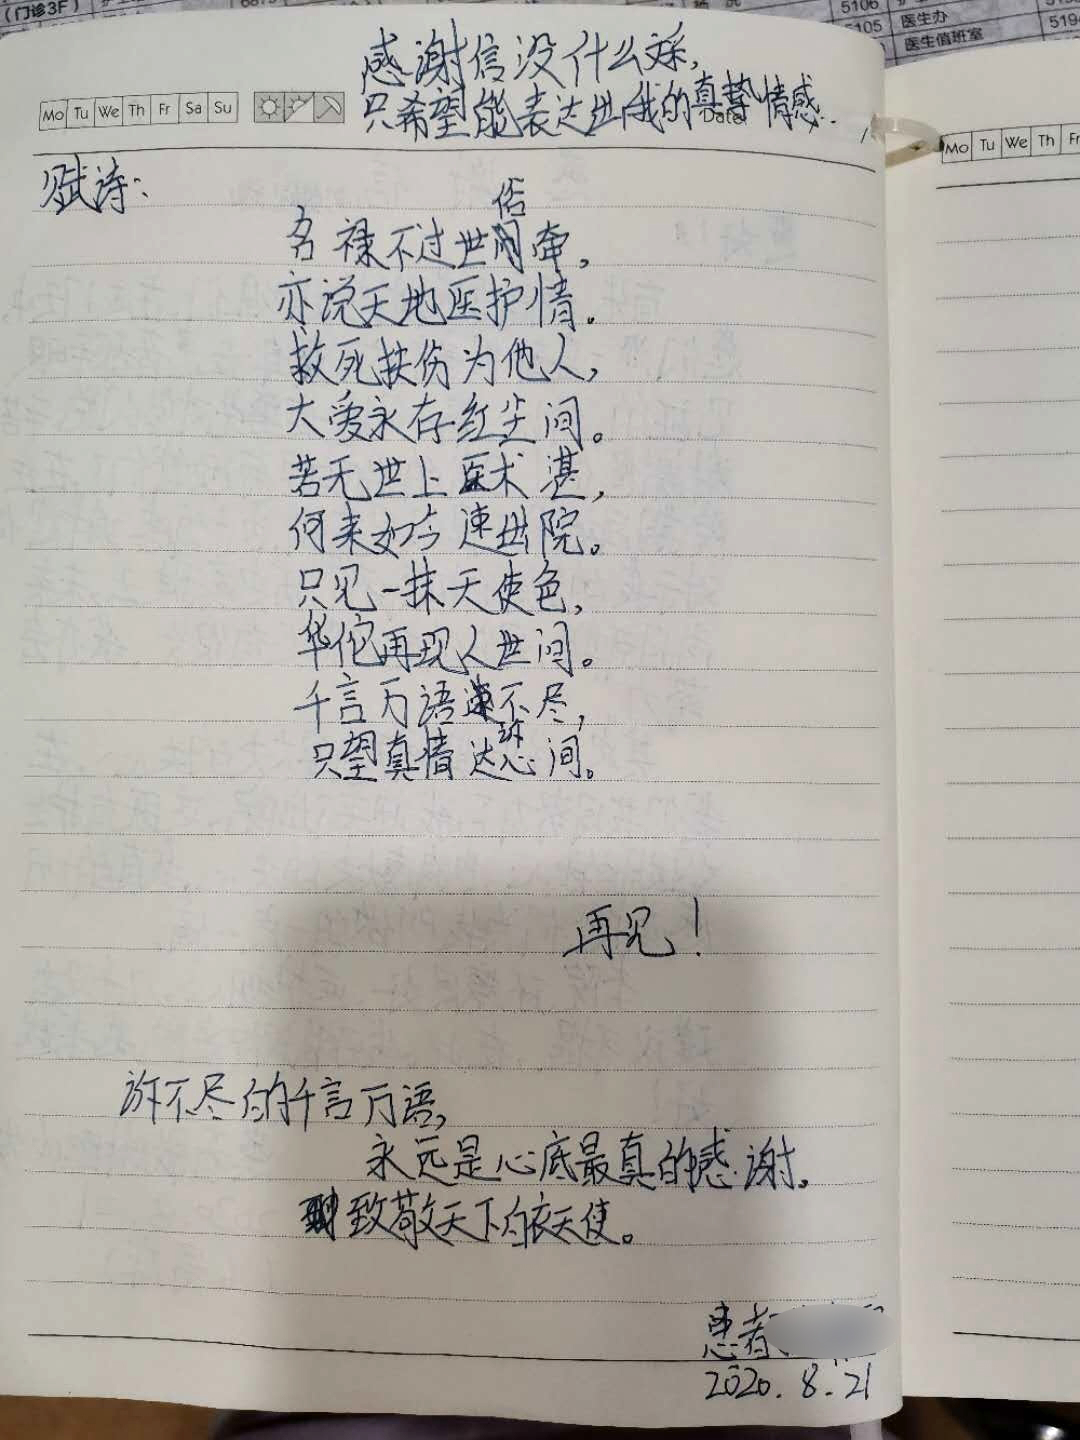 (门诊3F)
5106
医生办
5105
医生值班室
519
感谢信没什么文采,
只希望能表达出我的真挚情感..
Mo Tu We Th Fr Sa Su
Date
Mo Tu We Th Fr
赋诗:
俗
名禄不过世间牵,
亦说天地医护情。
救死扶伤为他人,
大爱永存红尘间。
若无世上医术湛,
何来如今速出院。
只见一抹天使色,
华佗再现人世间。
千言万语 不尽,
只望真情达 间。
再见!
诉不尽的千言万语,
永远是心底最真的感谢。
致敬天下白衣天使。
患者
2020.8.21